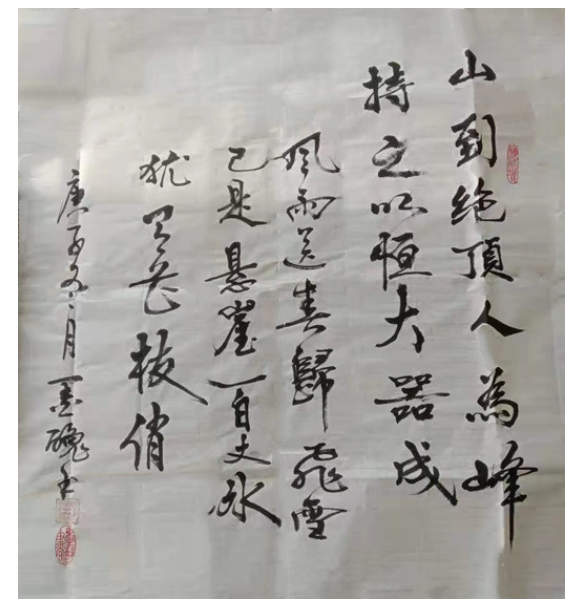 山到绝頂人為峰
持之以恒大器成
风雨送春歸飛雪
已是悬崖百丈冰
犹有花枝俏
庚子月